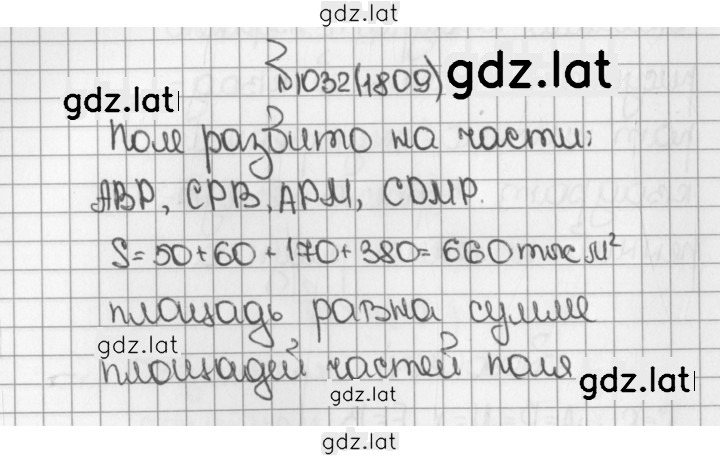 gdz.lat
№1032(1809) gdz.lat
gdz.lat
Поле разбито на части:
ABP, CPB, APM, CDMP.
S=50+60+170+380=660тыс м²
площадь равна сумме
gdz.lat
площадей частей поля
gdz.lat
gdz.lat
gdz.lat